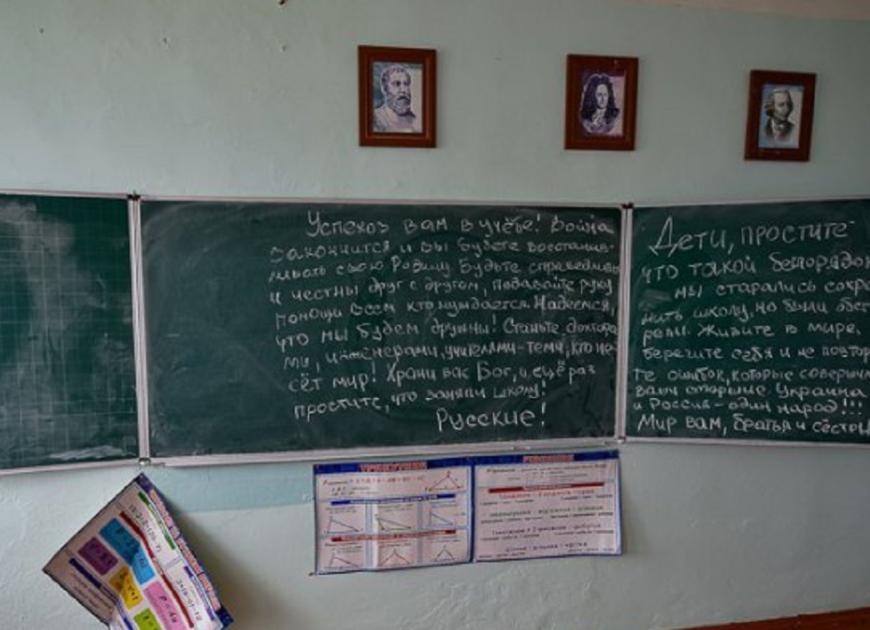 Успехов вам в учёбе! Война
закончится и вы будете восстанав-
ливать свою Родину Будьте справедливы
и честны друг с другом, подавайте руку
помощи всем кто нуждается. Надеемся,
что мы будем дружны! Станьте доктора-
ми, инженерами, учителями-теми, кто не-
сёт мир! Храни вас Бог, и ещё раз
простите, что заняли школу!
Русские!
Дети, простите
что такой беспорядок
мы старались сохра
нить школу, но были обст
релы. Живите в мире,
берегите себя и не повтор
те ошибок, которые совершил
ваши старшие. Украина
и Россия-один народ!!!
Мир вам, братья и сёстры